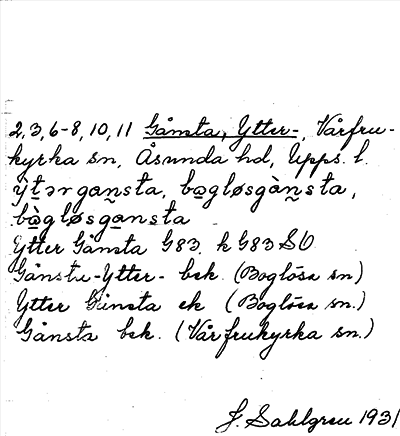 2,3,6-8,10,11 Gånsta, Ytter-, Vårfru-
kyrka sn, Åsunda hd, Upps. l.
ỳtərgan̬sta, bagløsgàn̬sta,
bàgløsgan̬sta
Ytter Gånsta G83. k G83 SO
Gånsta-Ytter- bek. (Boglösa sn)
Ytter Gånsta ek (Boglösa sn.)
Gånsta bek. (Vårfrukyrka sn.)
J. Sahlgren 1931